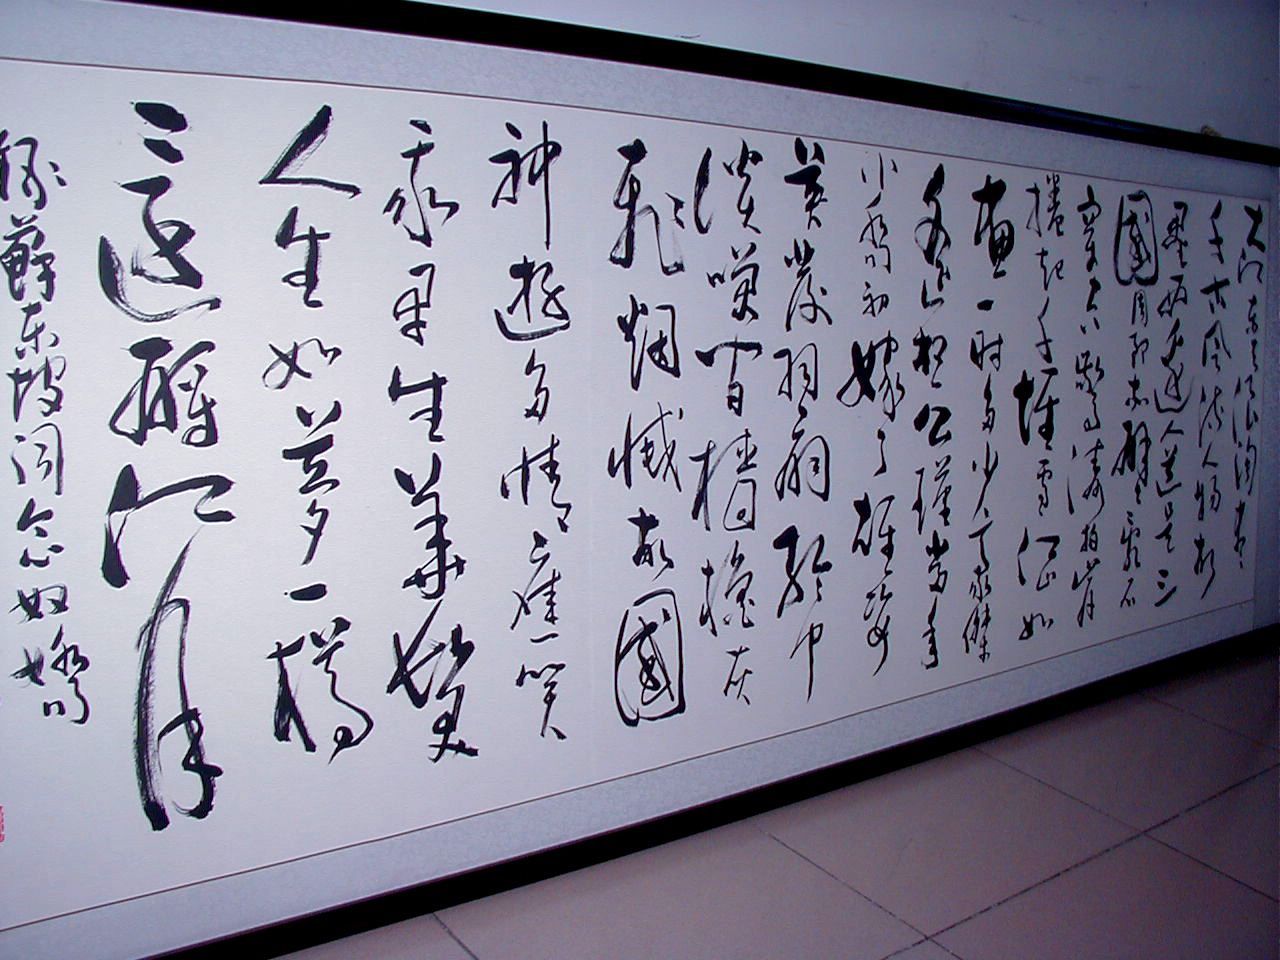 大江東去浪淘盡
千古風流人物故
壘西邊人道是三
國周郎赤壁亂石
穿空驚濤拍岸
捲起千堆雪江山如
畫一時多少豪傑
遙想公瑾當年
小喬初嫁了雄姿
英發羽扇綸巾
談笑間檣櫓灰
飛烟滅故國
神遊多情應笑
我早生華髮
人生如夢一樽
還酹江月
錄蘇東坡詞念奴嬌